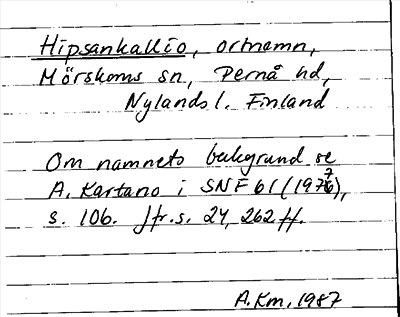 Hipsankallio, ortnamn,
Mörskoms sn, Pernå hd,
Nylands l. Finland
Om namnets bakgrund se
A. Kartano i SNF 61 (1977),
s. 106. Jfr. s. 24, 262 ff.
A.Km, 1987